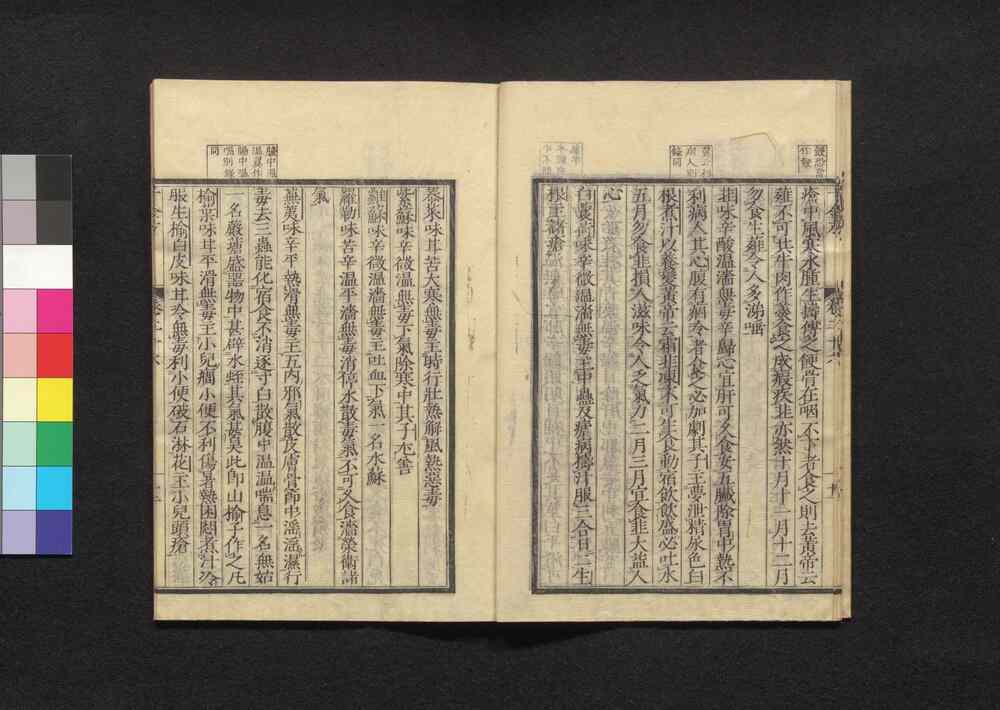 瘡中風寒水腫生擣傅之鯁骨在咽不下者食之則去黃帝云
薤不可共牛肉作羹食之成瘕疾韭亦然十月十一月十二月
勿食生薤令人多涕唾
韭味辛酸溫濇無毒辛歸心宜肝可久食安五臟除胃中熱不
利病人其心腹有痼冷者食之必加劇其子主夢泄精尿色白
根煮汁以養髮黃帝云霜韭凍不可生食動宿飲飲盛必吐水
五月勿食韭損人滋味令人乏氣力二月三月宜食韭大益人
心
白蘘荷味辛微溫濇無毒主中蠱及瘧病擣汁服三合日二生
根主諸瘡
菾菜味甘苦大寒無毒主時行壯熱解風熱惡毒
紫蘇味辛微溫無毒下氣除寒中其子尤善
雞蘇味辛微溫濇無毒主吐血下氣一名水蘇
羅勒味苦辛溫平濇無毒消停水散毒氣不可久食濇榮衛諸
氣
蕪荑味辛平熱滑無毒主五內邪氣散皮膚骨節中淫淫溫行
毒去三蟲能化宿食不消逐寸白散腹中溫溫喘息一名無姑
一名𦽄瑭盛器物中甚辟水蛭其氣甚臭此即山榆子作之凡
榆葉味甘平滑無毒主小兒癇小便不利傷暑熱困悶煮汁冷
服生榆白皮味甘冷無毒利小便破石淋花主小兒頭瘡